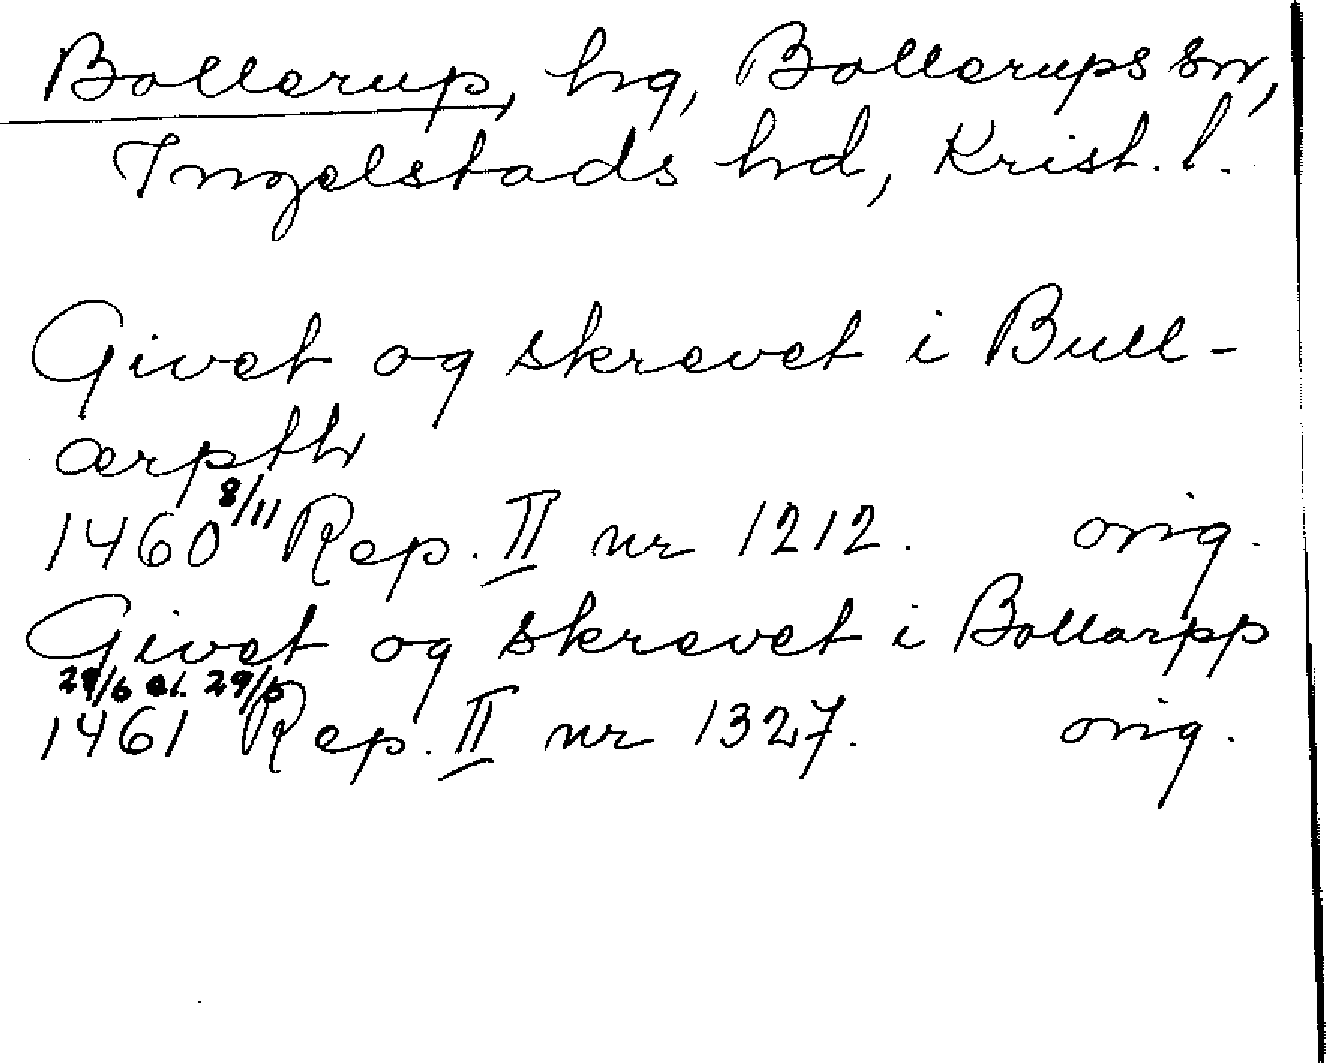 Bollerup, hg, Bollerups sn,
Ingelstads hd, Krist. l.
Givet og skrevet i Bull-
ærpth
8/11
1460 Rep. II nr 1212. orig.
Givet og skrevet i Bollarpp
29/6 el. 29/5
1461 Rep. II nr 1327. orig.